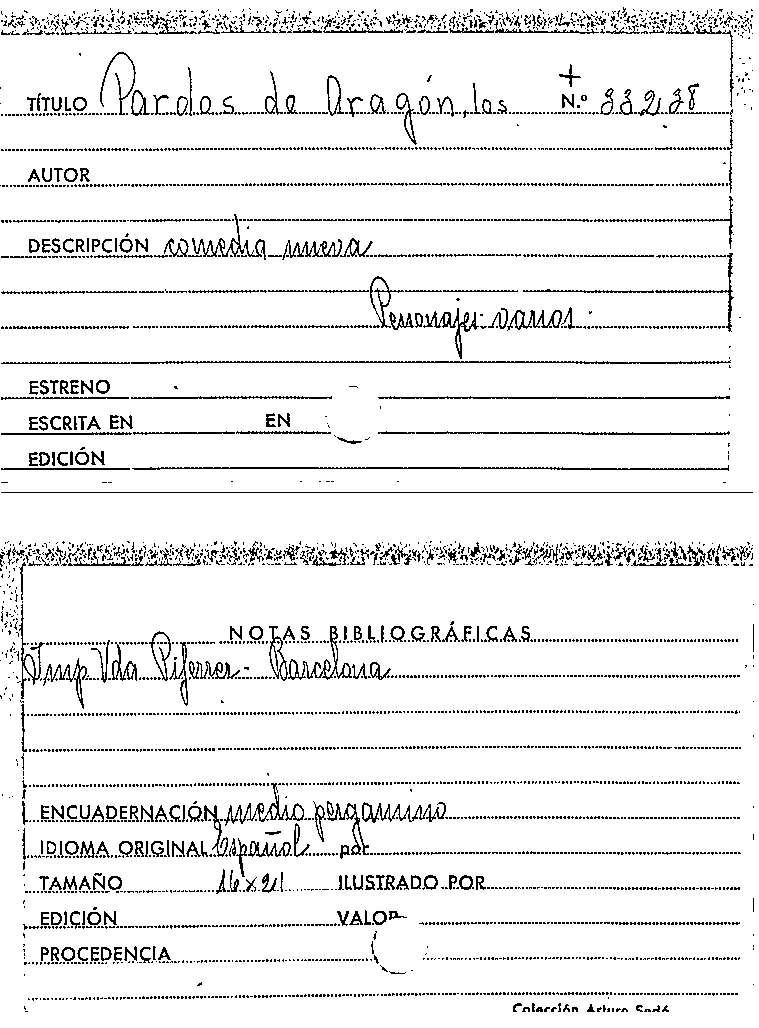 TÍTULO Pardos de Aragón, los + N.º 33238
AUTOR
DESCRIPCIÓN comedia nueva
Personajes varios.
ESTRENO
ESCRITA EN EN
EDICIÓN
NOTAS BIBLIOGRÁFICAS
Imp Vda Piferrer - Barcelona
ENCUADERNACIÓN medio pergamino
IDIOMA ORIGINAL Español por
TAMAÑO 16 x 21 ILUSTRADO POR
EDICIÓN VALOR
PROCEDENCIA
Colección Arturo Sedó